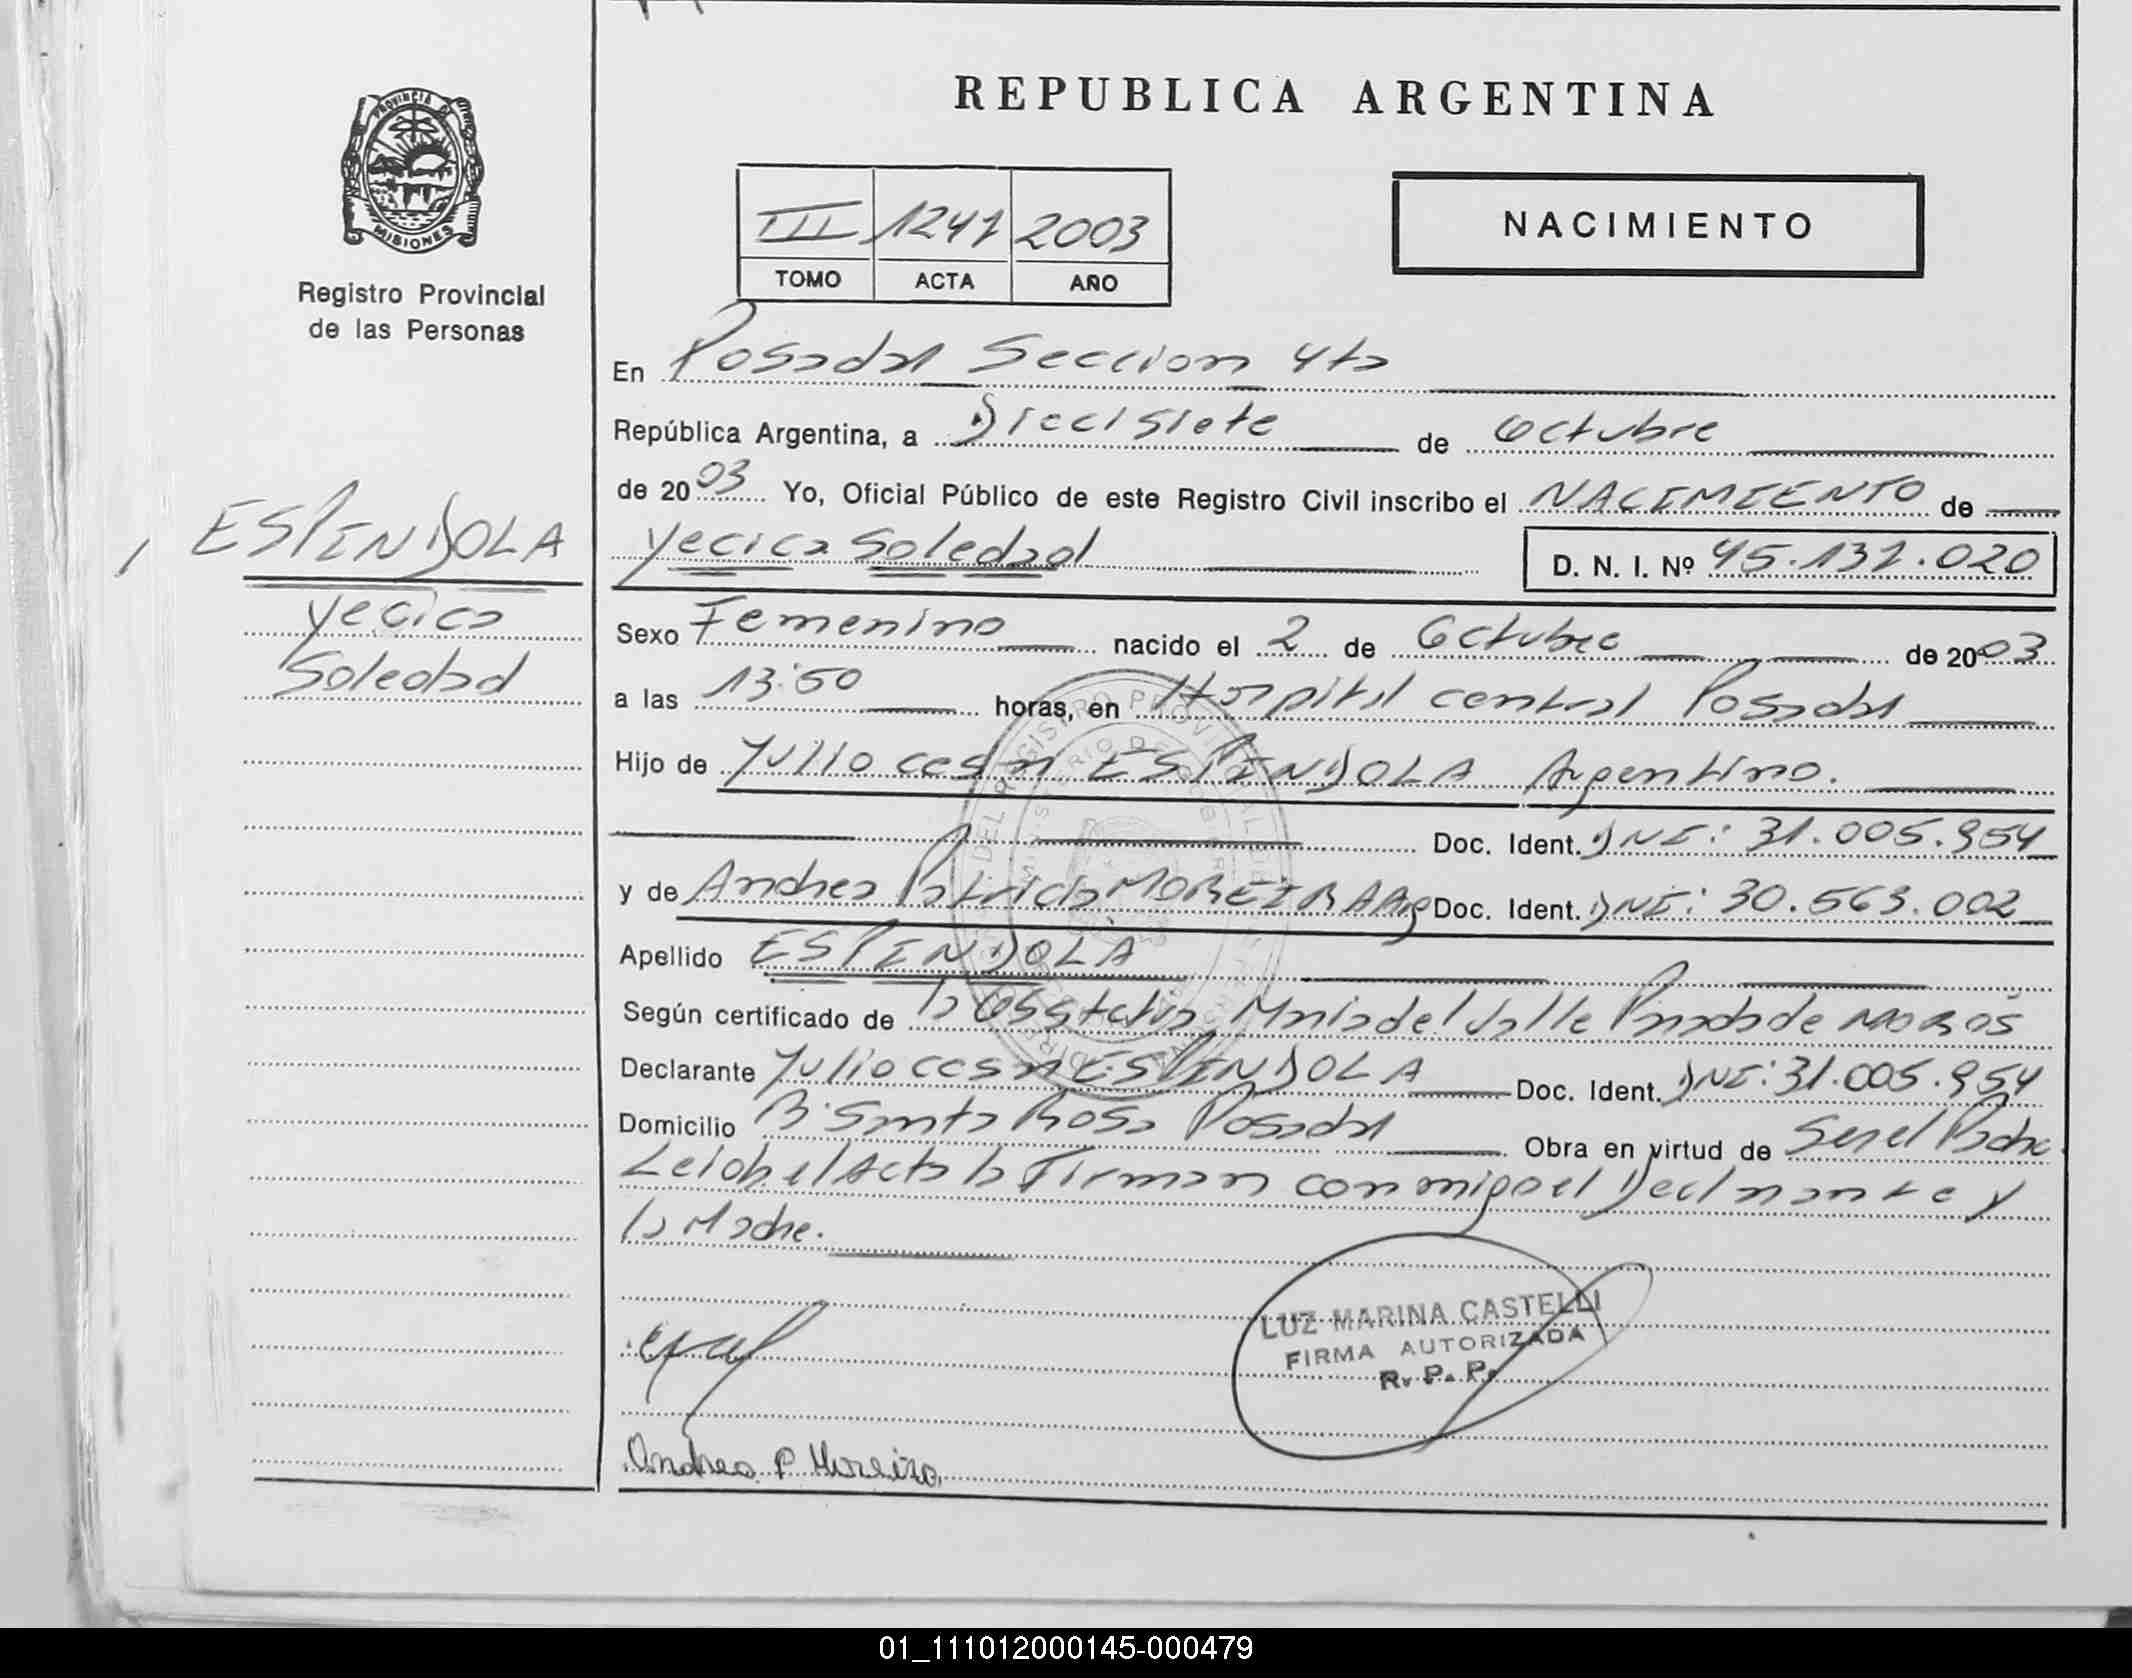 REPUBLICA ARGENTINA
PROVINCIA DE
MISIONES
Registro Provincial
de las Personas
III 1241 2003
TOMO ACTA AÑO
NACIMIENTO
En Posadas Seccion 4ta
República Argentina, a Diecisiete de Octubre
de 2003 Yo, Oficial Público de este Registro Civil inscribo el NACIMIENTO de
Yecica Soledad D. N. I. Nº 45.131.020
ESPINDOLA
Yecica
Soledad
Sexo Femenino nacido el 2 de Octubre de 2003
a las 13:50 horas, en Hospital central Posadas
Hijo de Julio cesar ESPINDOLA Argentino.
Doc. Ident. DNI: 31.005.954
y de Andrea Patricia MOREIRA Arg Doc. Ident. DNI: 30.563.002
Apellido ESPINDOLA
Según certificado de la Obstetra Maria del Valle Parada de
Declarante Julio cesar ESPINDOLA Doc. Ident. DNI: 31.005.954
Domicilio B° Santa Rosa Posadas Obra en virtud de Ser el Padre.
Leida el Acta la Firman conmigo el Declarante y
la Madre.
LUZ MARINA CASTELLI
FIRMA AUTORIZADA
R. P. P.
Andrea P Moreira
01_111012000145-000479